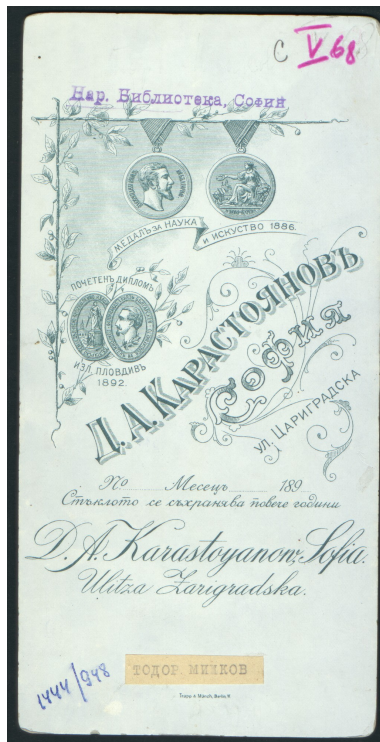 С V 68
Нар. Библиотека, София
МЕДАЛЪ ЗА НАУКА И ИСКУСТВО 1886.
ПОЧЕТЕНЪ ДИПЛОМЪ
ИЗЛ. ПЛОВДИВЪ
1892.
Д. А. КАРАСТОЯНОВЪ
София
УЛ. ЦАРИГРАДСКА
No Месецъ 189
Стъклото се съхранява повече години
D. A. Karastoyanow, Sofia.
Ulitza Zarigradska.
ТОДОР МИНКОВ
1444/948
Trapp & Münch, Berlin, W